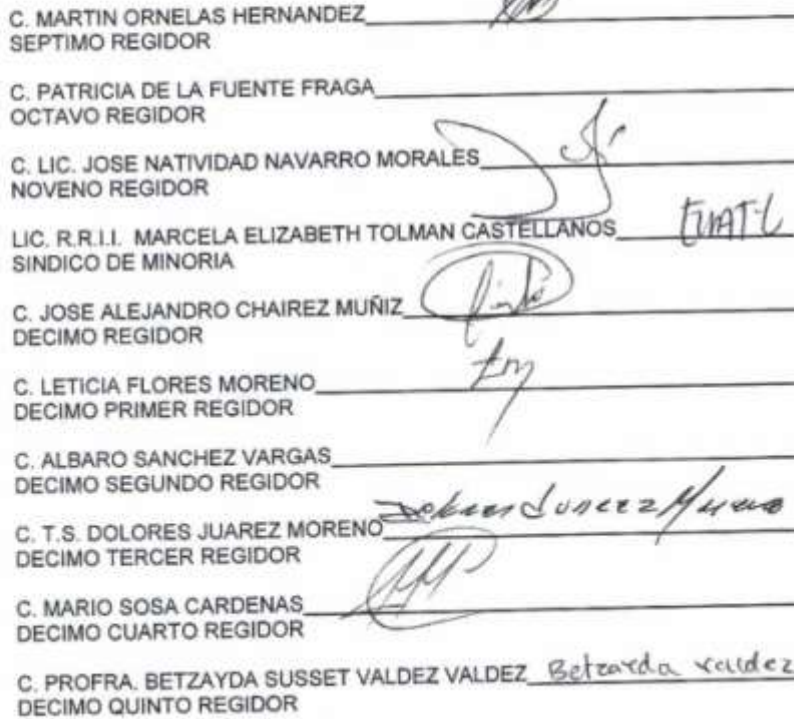 C. MARTIN ORNELAS HERNANDEZ
SEPTIMO REGIDOR
C. PATRICIA DE LA FUENTE FRAGA
OCTAVO REGIDOR
C. LIC. JOSE NATIVIDAD NAVARRO MORALES
NOVENO REGIDOR
LIC. R.R.I.I. MARCELA ELIZABETH TOLMAN CASTELLANOS
SINDICO DE MINORIA
C. JOSE ALEJANDRO CHAIREZ MUÑIZ
DECIMO REGIDOR
C. LETICIA FLORES MORENO
DECIMO PRIMER REGIDOR
C. ALBARO SANCHEZ VARGAS
DECIMO SEGUNDO REGIDOR
C. T.S. DOLORES JUAREZ MORENO Dolores Juarez Moreno
DECIMO TERCER REGIDOR
C. MARIO SOSA CARDENAS
DECIMO CUARTO REGIDOR
C. PROFRA. BETZAYDA SUSSET VALDEZ VALDEZ Betzayda valdez
DECIMO QUINTO REGIDOR